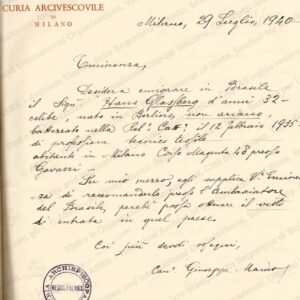 CURIA ARCIVESCOVILE
DI
MILANO
Milano, 29 Luglio, 1940
Eminenza,
Desidera emigrare in Brasile
il Sign. Hans Glasberg d'anni 32 -
celibe, nato in Berlino, non ariano,
battezzato nella Rel. Catt. il 12 febbraio 1935
di professione tecnico tessile
abitante in Milano Corso Magenta 48 presso
Gavazzi -
Per mio mezzo egli supplica V. Eminen
za di raccomandarlo presso l'Ambasciatore
del Brasile, perchè possa avere il visto
di entrata in quel paese.
Coi più devoti ossequi,
Can. Giuseppe
MEDIOLANENSIS